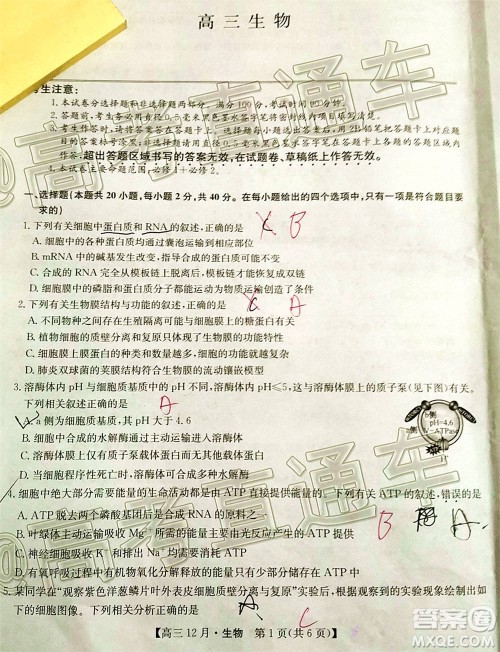 高三生物
考生注意:
1.本试卷分选择题和非选择题两部分。满分100分,考试时间90分钟。
2.答题前,考生务必用直径0.5毫米黑色墨水签字笔将密封线内项目填写清楚。
3.考生作答时,请将答案答在答题卡上。选择题每小题选出答案后,用2B铅笔把答题卡上对应题目的答案标号涂黑;非选择题请用直径0.5毫米黑色墨水签字笔在答题卡上各题的答题区域内作答,超出答题区域书写的答案无效,在试题卷、草稿纸上作答无效。
4.本卷命题范围:必修1+必修2。
一、选择题(本题共20小题,每小题2分,共40分。在每小题给出的四个选项中,只有一项是符合题目要求的)
1.下列有关细胞中蛋白质和RNA的叙述,正确的是
B
A.细胞中的各种蛋白质均通过囊泡运输到相应部位
B.mRNA中的碱基发生改变,不一定会影响蛋白质的结构
C.合成的RNA完全从模板链上脱离后,模板链才恢复成双链
D.细胞膜中的磷脂和蛋白质分子都能运动为物质运输创造了条件
2.下列有关生物膜结构与功能的叙述,正确的是
A
A.不同物种之间存在生殖隔离可能与生物膜上的糖蛋白有关
B.植物细胞的质壁分离和复原与生物膜的功能特点有关
C.细胞膜上膜蛋白的种类和数量越多,其功能越复杂
D.肺炎双球菌的荚膜结构符合生物膜的流动镶嵌模型
3.溶酶体内pH与细胞质基质中的pH不同,溶酶体内pH≤5,这与溶酶体膜上的质子泵(见下图)有关。下列相关叙述正确的是
A
A.a侧为细胞质基质,其pH大于4.6
B.细胞中合成的水解酶通过主动运输进入溶酶体
C.溶酶体膜上仅有的蛋白质是质子泵
D.当细胞程序性死亡时,溶酶体不会释放水解酶
b侧
pH=4.6
ATPase
4.细胞中绝大部分需要能量的生命活动都是由ATP直接提供能量的。下列有关ATP的叙述,错误的是
A.ATP脱去两个磷酸基团后是合成RNA的原料之一
B A
B.叶绿体主动运输吸收Mg²⁺所需的能量可由光反应产生的ATP提供
C.神经细胞吸收K⁺和排出Na⁺均需要消耗ATP
D.所有生物细胞中都存在有机物氧化分解释放的能量驱动合成ATP
5.某同学在“观察紫色洋葱鳞片叶外表皮细胞质壁分离与复原”实验后,根据观察到的实验现象绘制出如下的细胞图像。下列相关分析正确的是
A. C
【高三12月·生物 第1页(共6页)】
@高考直通车
答案圈
MXQE.COM